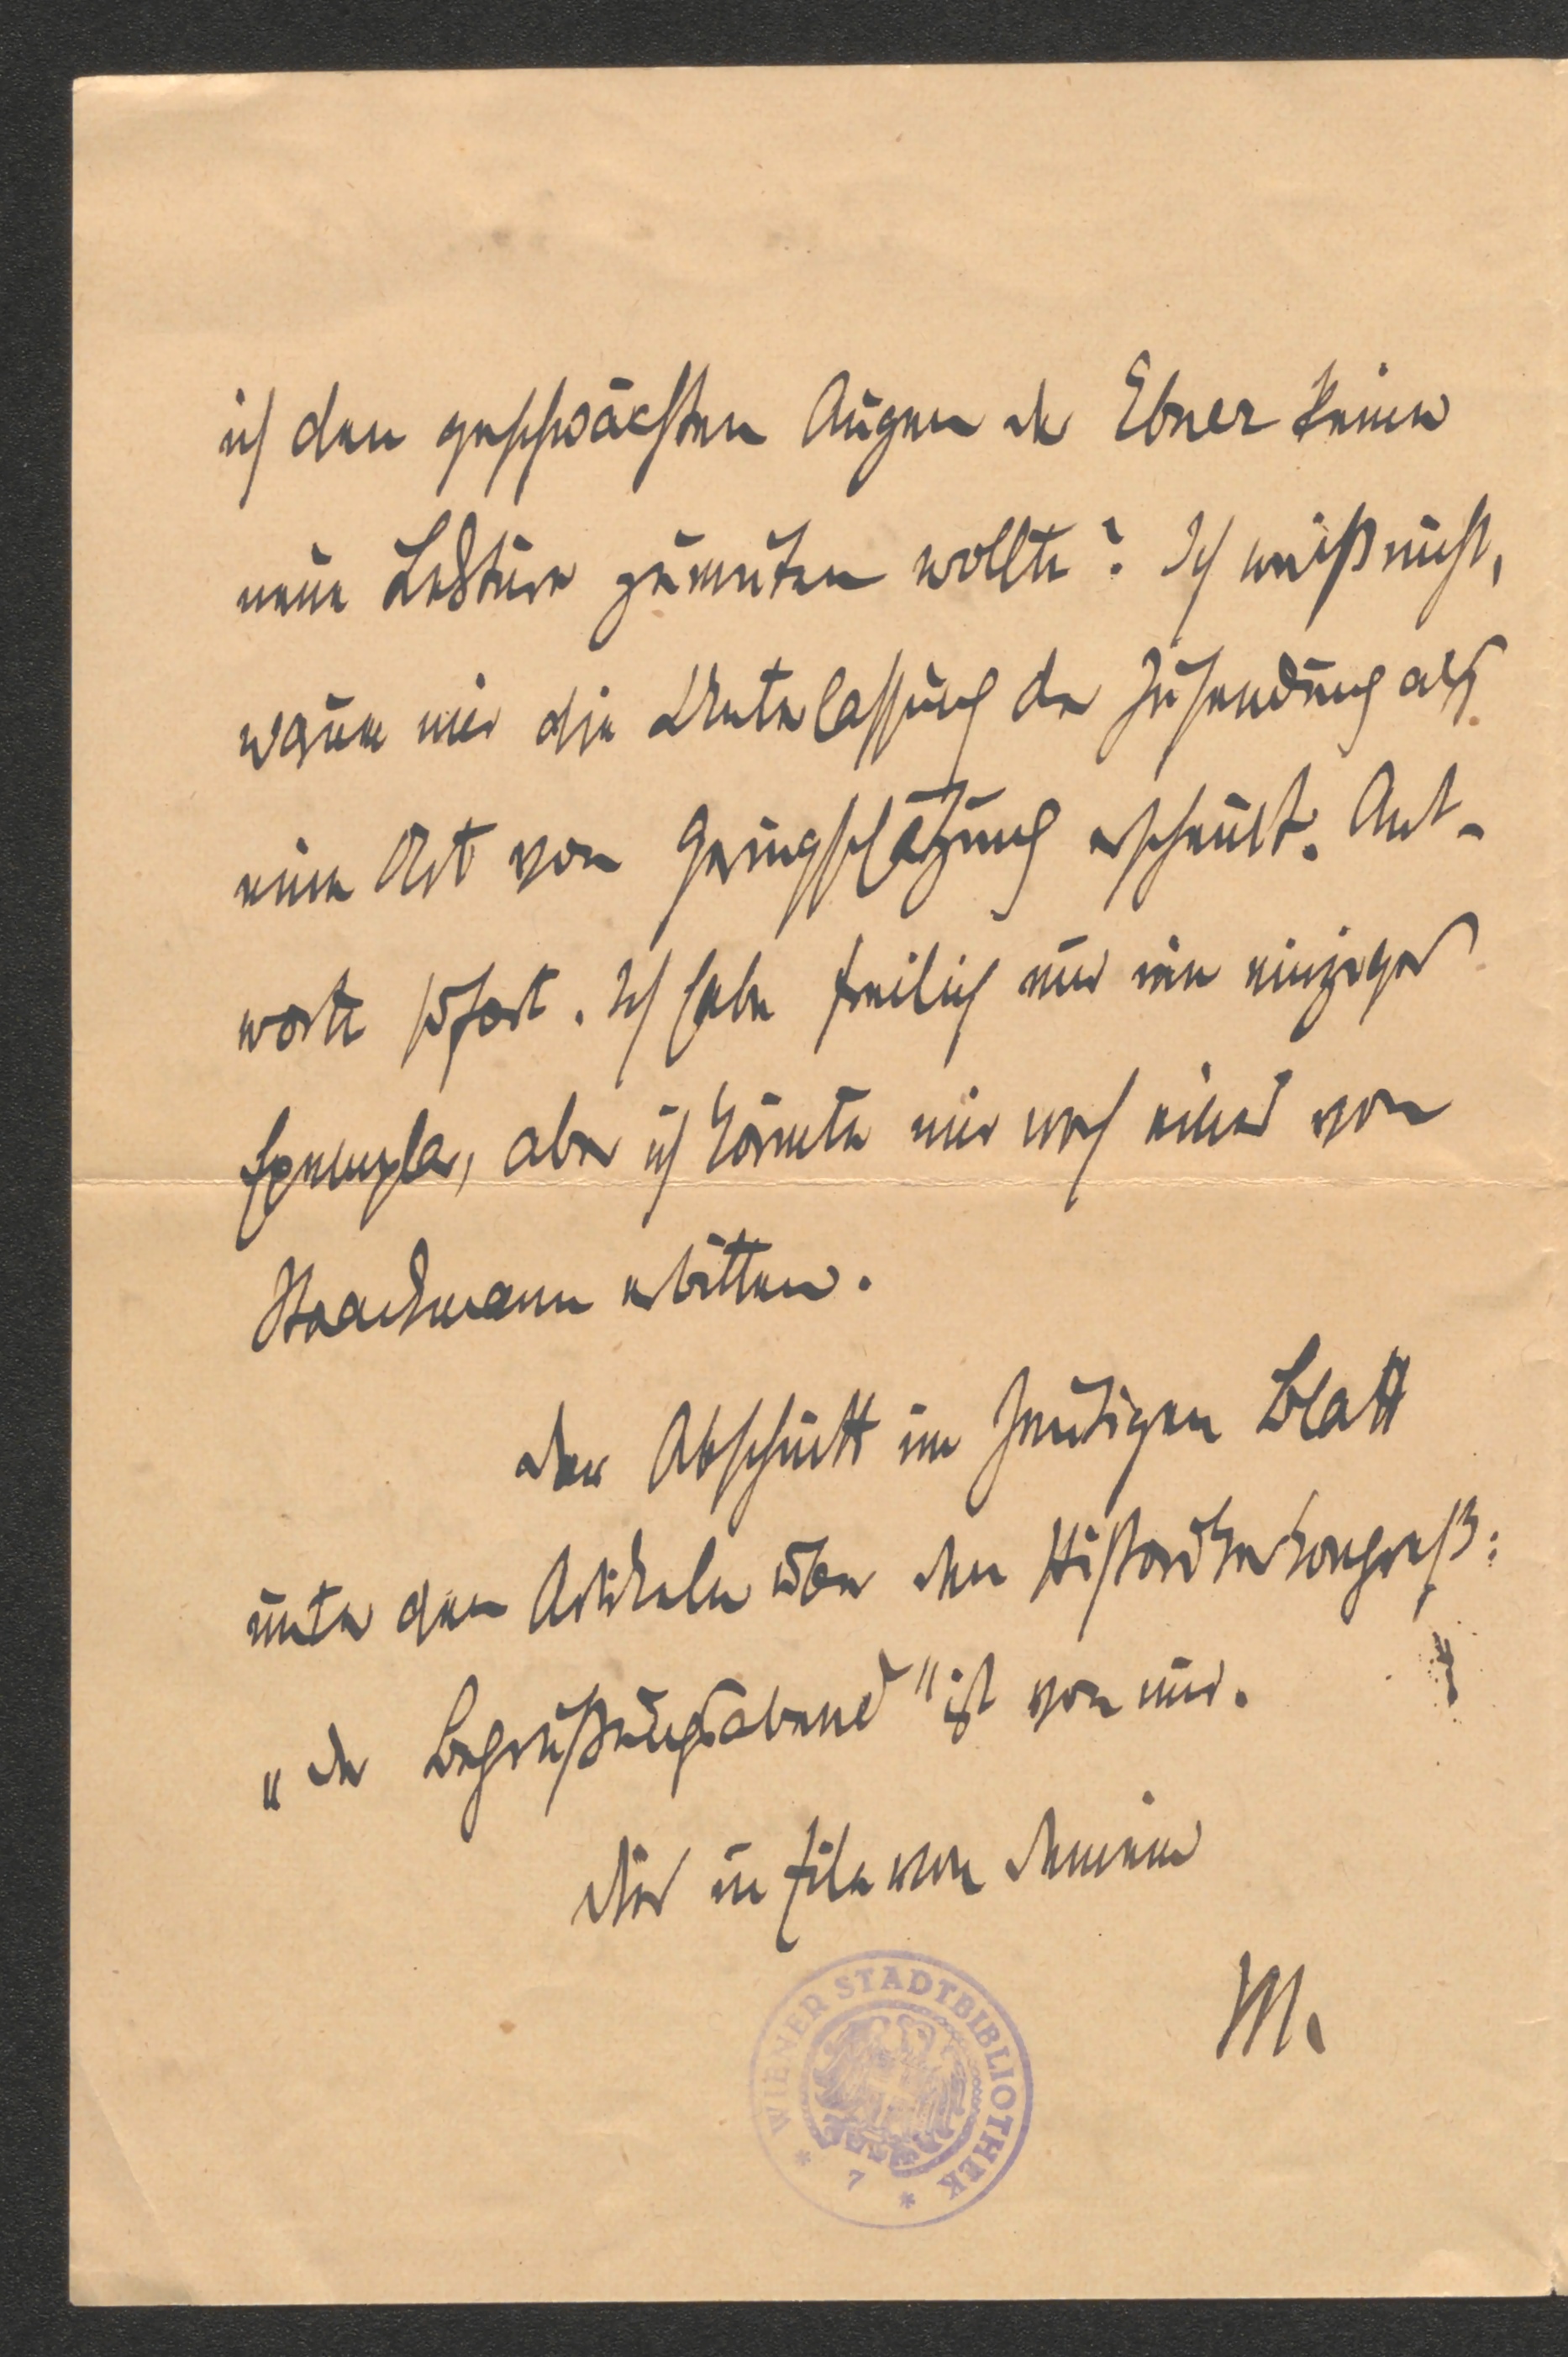 ich den geschwächten Augen der Ebner keine
neue Lektüre zumuten wollte? Ich weiß nicht,
warum mir die Unterlassung der Zusendung als
eine Art von Geringschätzung erscheint. Ant-
worte sofort. Ich habe freilich nur ein einziges
Exemplar, aber ich könnte mir noch eines von
Staackmann erbitten.
Der Abschnitt im heutigen Blatt
unter den Artikeln über den Historikerkongreß:
„Der Begrüßungsabend" ist von mir.
Dies in Eile von Deinem
M.
WIENER STADTBIBLIOTHEK
* 7 *